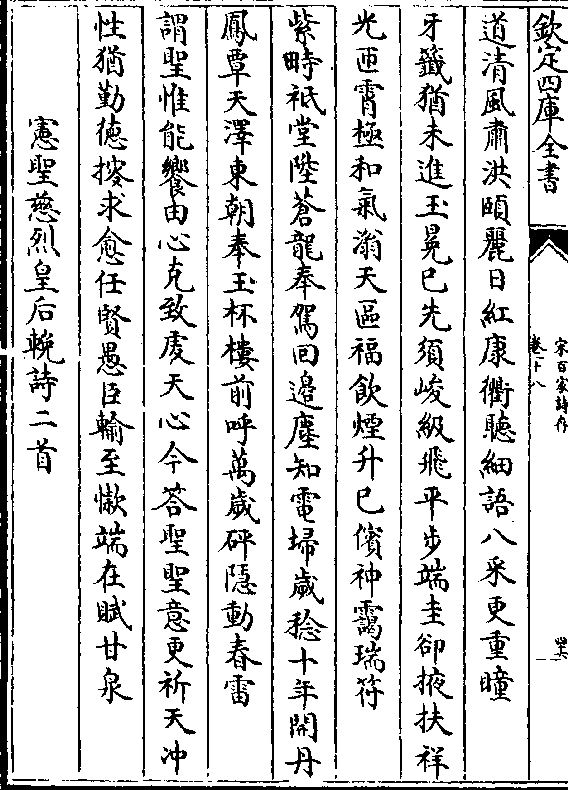 欽定四庫全書
宋百家詩存
卷十八
道清風肅洪頤麗日紅康衢聽細語八采更重瞳
牙籤猶未進玉晃已先須峻級飛平步端圭卻掖扶祥
光匝霄極和氣滃天區福飲煙升已儐神靄瑞符
紫畤祇堂陛蒼龍奉駕回邉塵知電埽歲稔十年開丹
鳳覃天澤東朝奉玉杯樓前呼萬歲砰隱動春雷
謂聖惟能饗由心克致虔天心今答聖聖意更祈天冲
性猶勤徳搜求愈任賢愚臣輸至慊端在賦甘泉
憲聖慈烈皇后輓詩二首